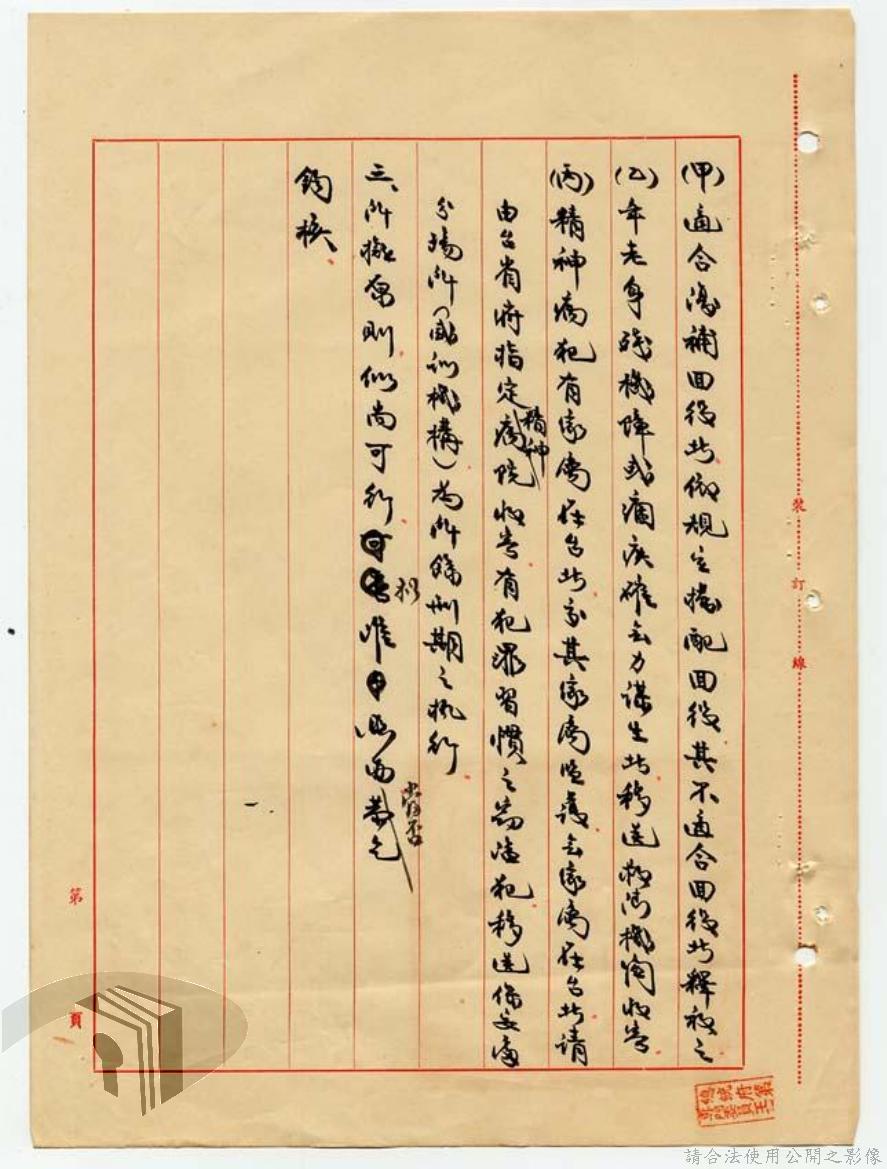 (甲)適合海補回役者依規定撥配回役其不適合回役者釋放之
(乙)年老身殘機障或痼疾確無力謀生者移送救濟機關收容
(丙)精神病犯有家屬在台者交其家屬監護無家屬在台者請
由台省府指定精神病院收容有犯罪習慣之煙毒犯移送保安處
分場所(感訓機構)為所餘刑期之執行
三、所擬原則似尚可行擬准照西恭乞
鈞核
裝訂線
第 頁
總統府第
請合法使用公開之影像